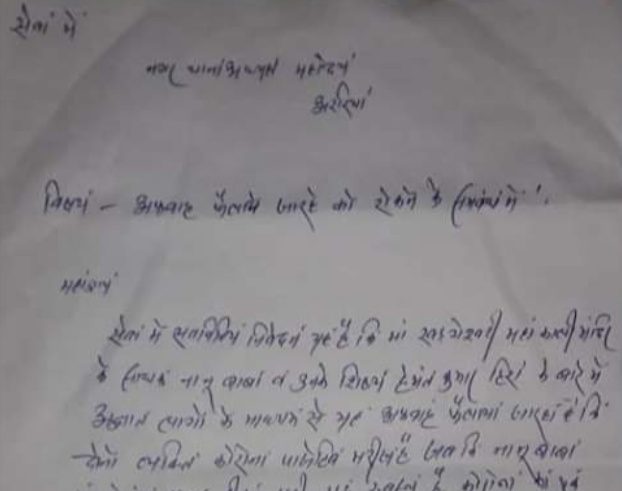 सेवा में
नगर थाना अध्यक्ष महोदय
अररिया
विषय – अफवाह फैलाये जा रहे को रोकने के संबंध में।
महाशय
सेवा में सविनय निवेदन यह है कि मां खड्गेश्वरी महाकाली मंदिर
के साधक नानू बाबा व उनके शिष्य हेमंत कुमार हीरा के बारे में
अज्ञात लोगों के माध्यम से यह अफवाह फैलाया जा रहा है कि
दोनों व्यक्ति कोरोना पॉजेटिव मरीज है जबकि नानू बाबा